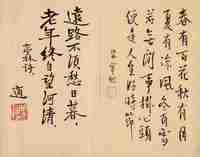 春有百花秋有月
夏有涼風冬有雪
若無閒事掛心頭
便是人生好時節
遠路不須愁日暮
老年終自望河清
亭林詩